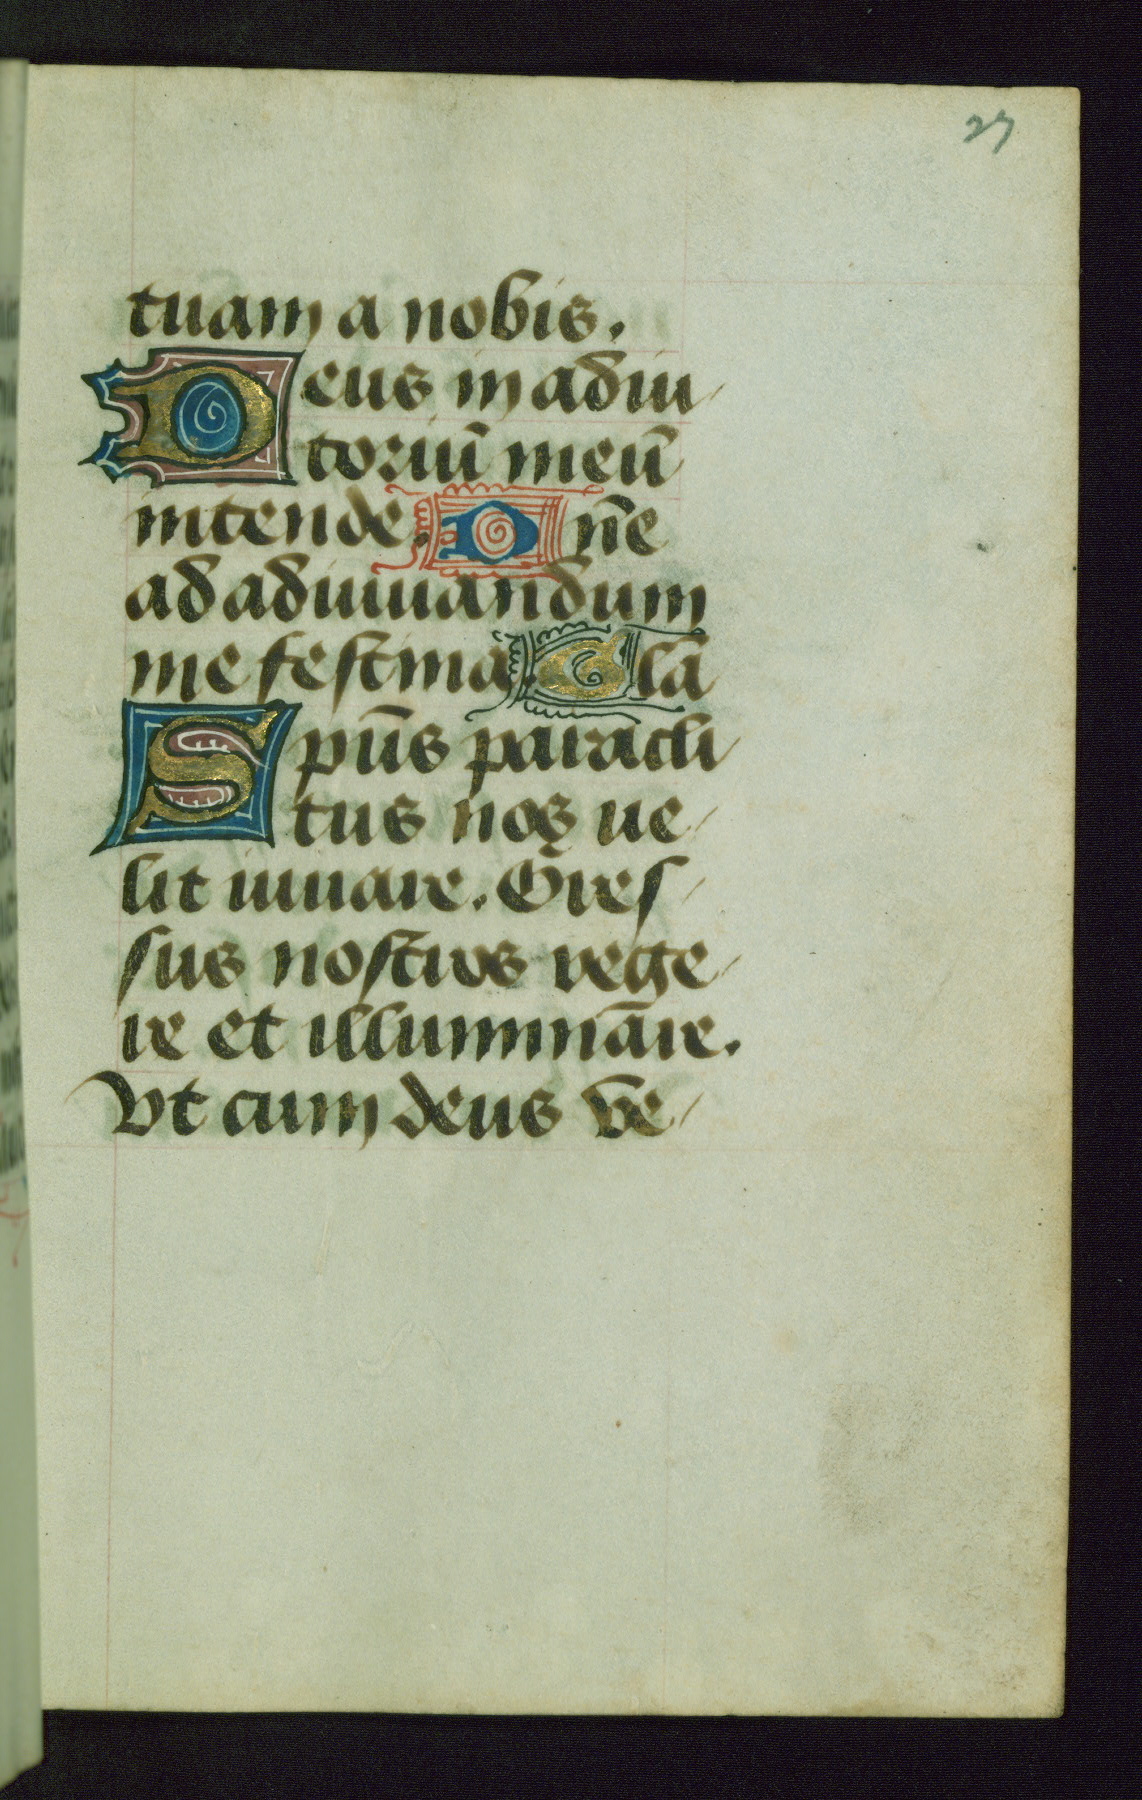 27
tuam a nobis.
Deus in adiu
toriū meū
intende. Dn̄e
ad adiuuandum
me festina. Glā
Spūs paracli
tus nos ue
lit iuuare. Gres
sus nostros rege
re et illumināre.
Vt cum deus vē